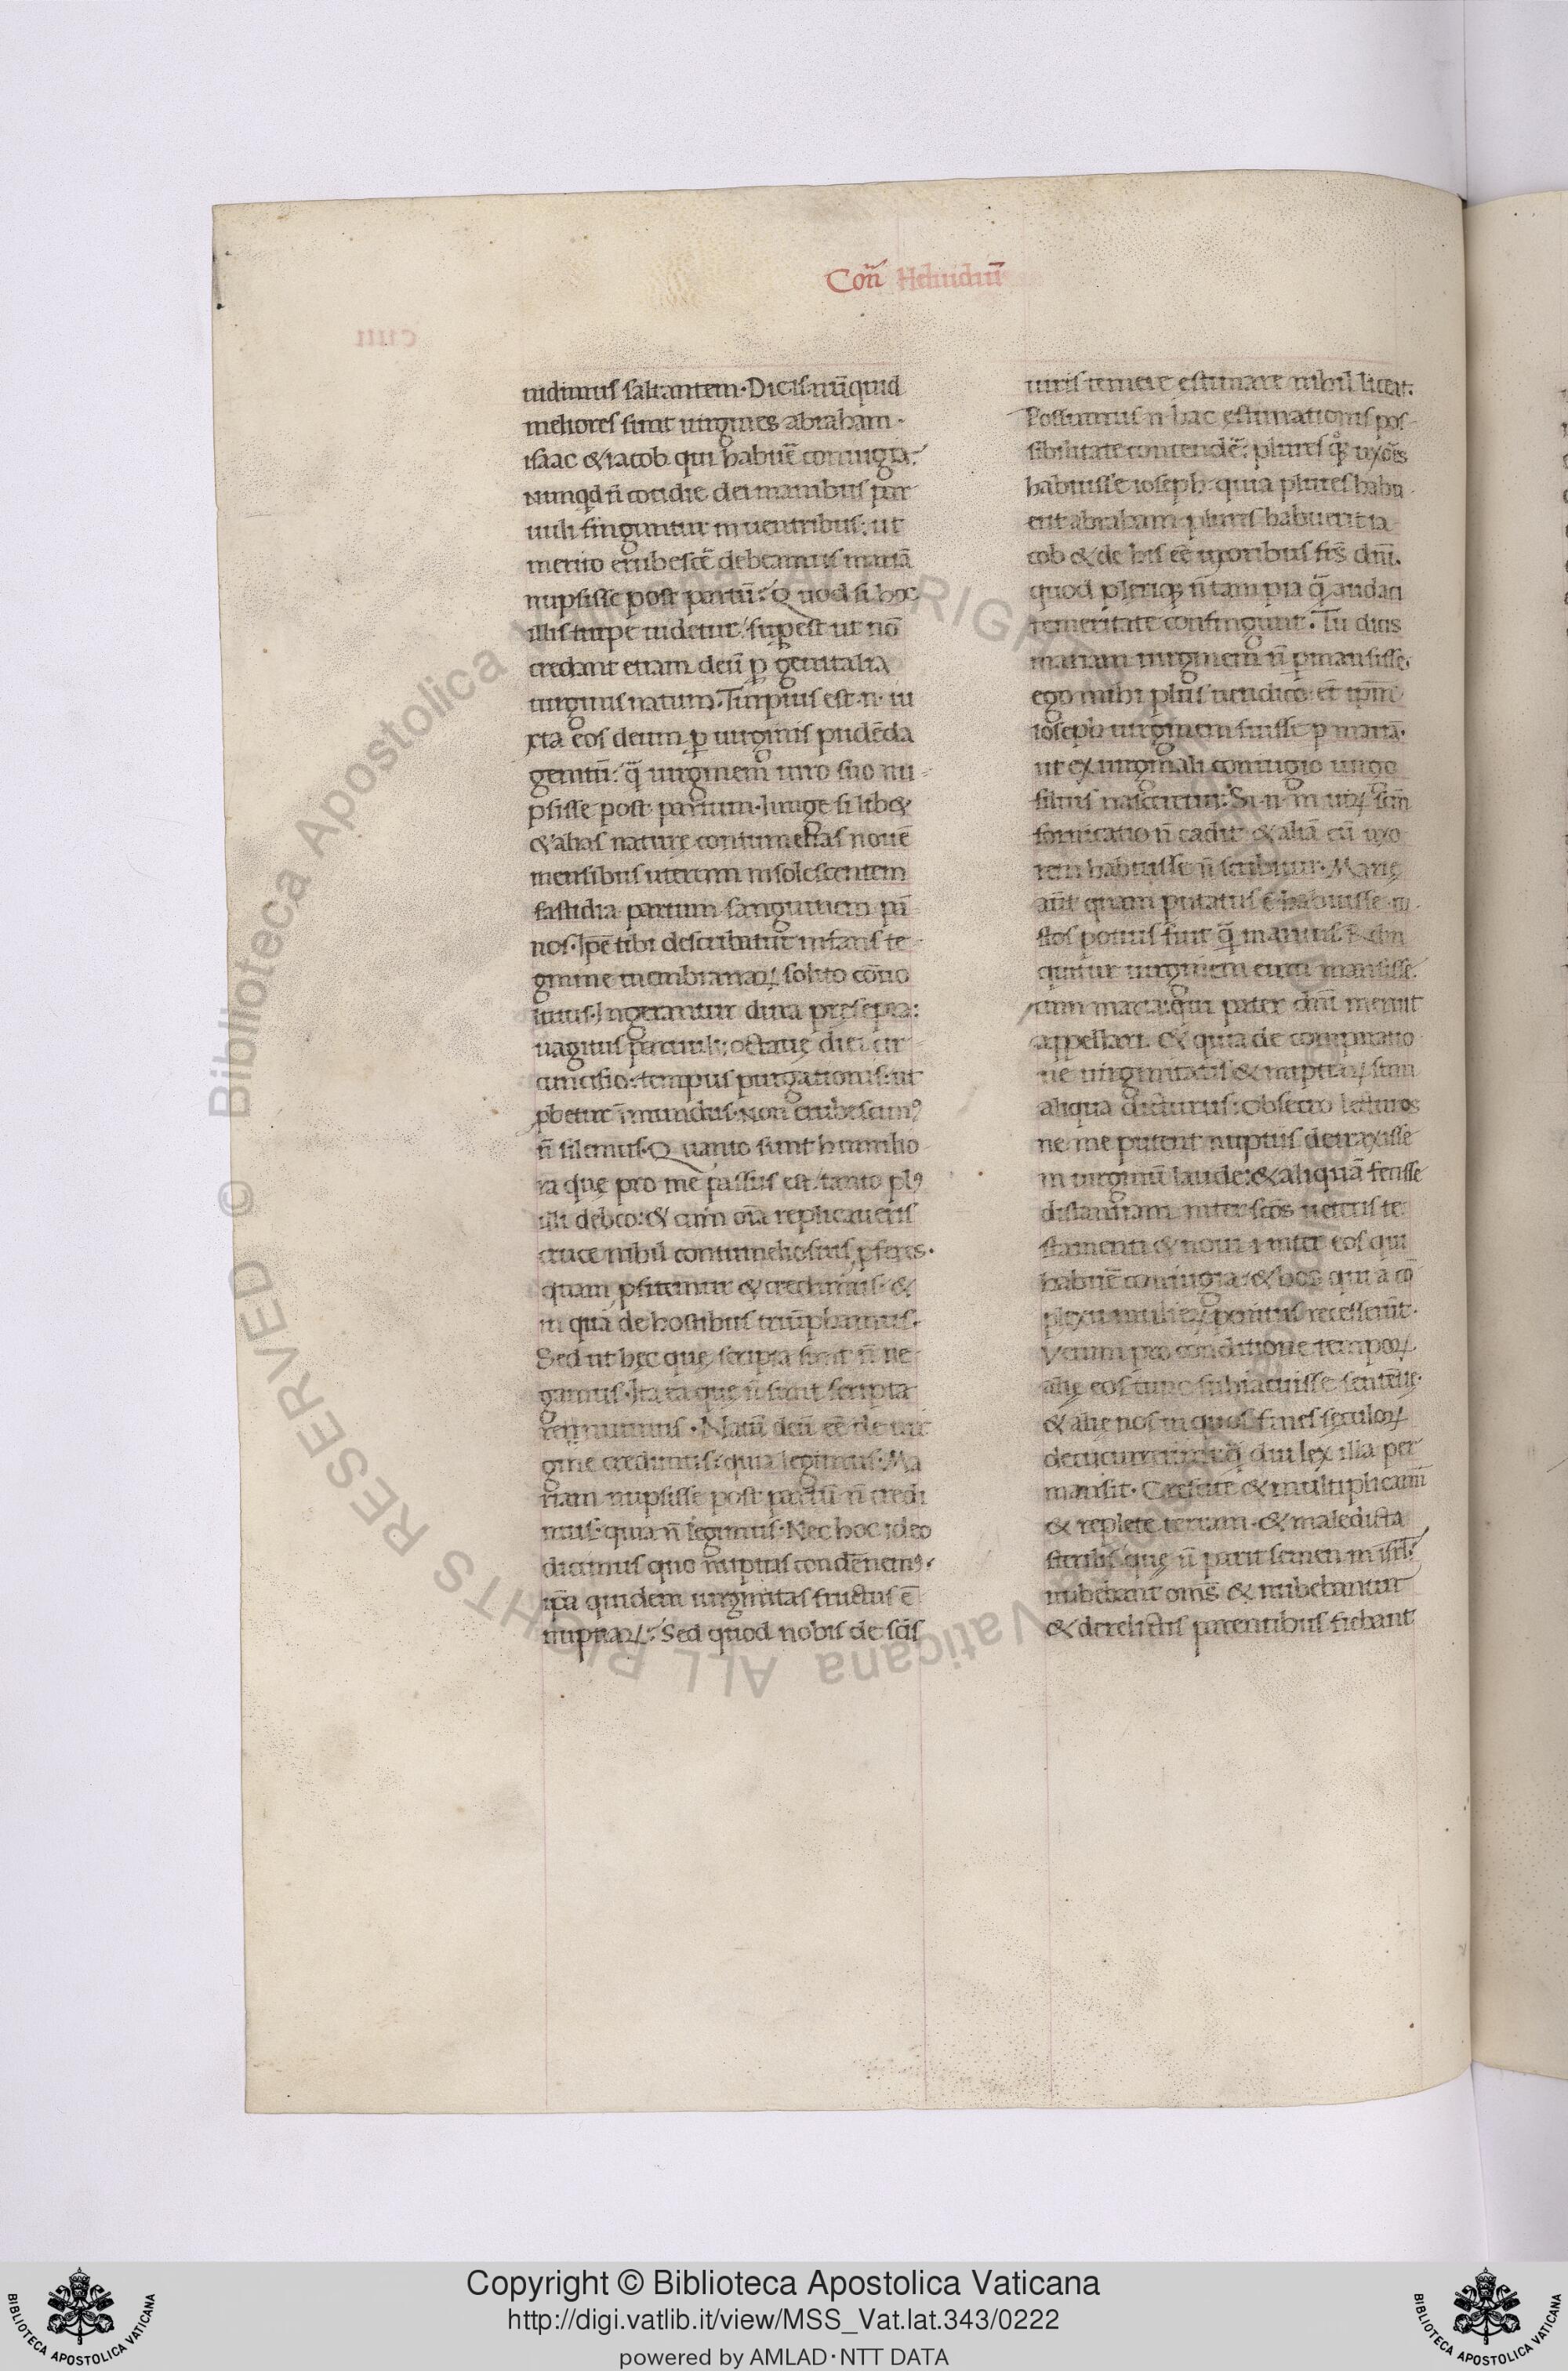 Con̄ Heluidiū
ciiii
uidimus saltantem. Dicis nūquid
meliores sunt uirgines abraham.
isaac & iacob qui habuē coniugia:
Nunqd n̄ cotidie dei manibus par
uuli finguntur in uentribus: ut
merito erubescē debeamus mariā
nupsisse post partū? Quod si hoc
illis turpe uidetur: supest ut nō
credant etiam deū p genitalia
uirginis natum. Turpius est .n. iu
xta eos deum p uirginis pudēda
genitū: q̄ uirginem uiro suo nu
psisse post partum. Iunge si lib&
& alias naturę contumelias nouē
mensibus uterum insolescentem
fastidia partum sanguinem pā
nos. Ipse tibi describatur infans te
gmine membranaꝝ solito cōuo
lutus. Ingerantur dura pręsepia:
uagitus paruuli: octauę diei cir
cuncisio: tempus purgationis: ut
pbetur īmundus. Non erubescimꝰ
n̄ silemus. Quanto sunt humilio
ra que pro me passus est: tanto plꝰ
illi debeo: & cum oīa replicaueris
cruce nihil contumeliosius pferes.
quam pfitemur & credimus. &
in qua de hostibus triūphamus.
Sed ut hęc quę scripta sunt n̄ ne
gamus. Ita ea quę n̄ sunt scripta
rennuimus. Natū deū eē de uir
gine credimus: quia legimus. Ma
riam nupsisse post partū n̄ credi
mus. quia n̄ legimus. Nec hoc ideo
dicimus quo nuptias condēnemꝰ.
ipā quidem uirginitas fructus ē
nuptiaꝝ: Sed quod nobis de scīs
uiris temere estimare nihil liceat.
Possumus .n. hac estimationis pos
sibilitate contendē: plures qꝫ uxōes
habuisse ioseph: quia plures habu
erit abraham: pluris habuerit ia
cob & de his eē uxoribus frs̄ dnī.
quod pleriqꝫ n̄ tam pia q̄ audaci
temeritate confingunt. Tu dicis
mariam uirginem n̄ pmansisse.
ego mihi plus uendico: et̄ ipm̄
ioseph uirginem fuisse p mariā.
ut ex uirginali coniugio uirgo
filius nasceretur. Si .n. in uiꝝ scm̄
fornicatio n̄ cadit: & aliā eū uxo
rem habuisse n̄ scribitur. Marię
aūt quam putatus ē habuisse
stos potius fuit q̄ maritus.
quitur uirginem eum mansisse
cum maria: qui pater dnī meruit
appellari. & quia de comparatio
ne uirginitatis & nuptiaꝝ sum
aliqua dicturus: Obsecro lecturos
ne me putent nuptiis detraxisse
in uirginū laude: & aliquā fecisse
distantiam inter scōs ueteris te
stamenti & noui .i. inter eos qui
habuē coniugia: & hos qui a cō
plexu mulieꝝ penitus recesserūt.
Verum pro conditione tempoꝝ
alię eos tunc subiacuisse sentētię.
& alię nos in quos fines sęculoꝝ
decucurrerunt: q̄ diu lex illa per
mansit. Crescite & multiplicamī
& replete terram. & maledicta
sterilis quę n̄ parit semen in isrl̄:
nubebant om̄s & nubebantur
& derelictis parentibus fiebant
© Biblioteca Apostolica Vaticana ALL RIGHTS RESERVED
Copyright © Biblioteca Apostolica Vaticana
http://digi.vatlib.it/view/MSS_Vat.lat.343/0222
powered by AMLAD·NTT DATA
BIBLIOTECA APOSTOLICA VATICANA
BIBLIOTECA APOSTOLICA VATICANA